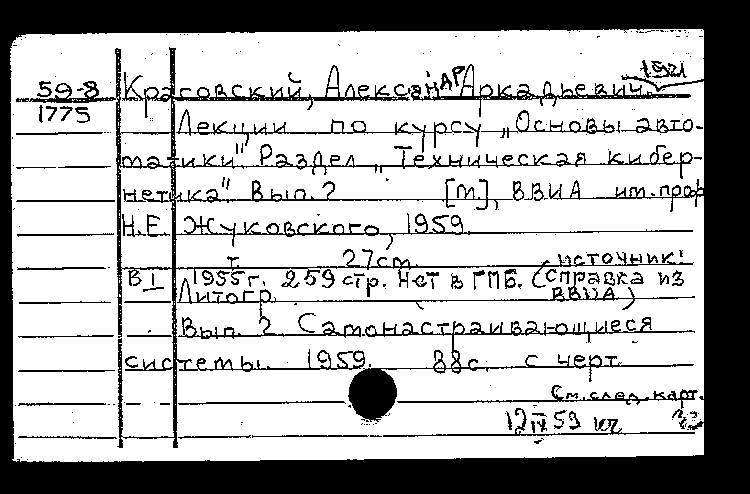 1921
59-8 Красовский, Александр Аркадьевич.
1775
Лекции по курсу „Основы авто-
матики". Раздел „Техническая кибер-
нетика". Вып. 2 [М.], ВВИА им. проф
Н.Е. Жуковского, 1959.
т. 27cm.
В I 1955 г. 259 стр. Нет в ГПБ. (источник:
справка из
ВВИА)
Литогр.
Вып. 2 Самонастраивающиеся
системы. 1959. 88с. с черт.
См. след. карт.
12 IV 59